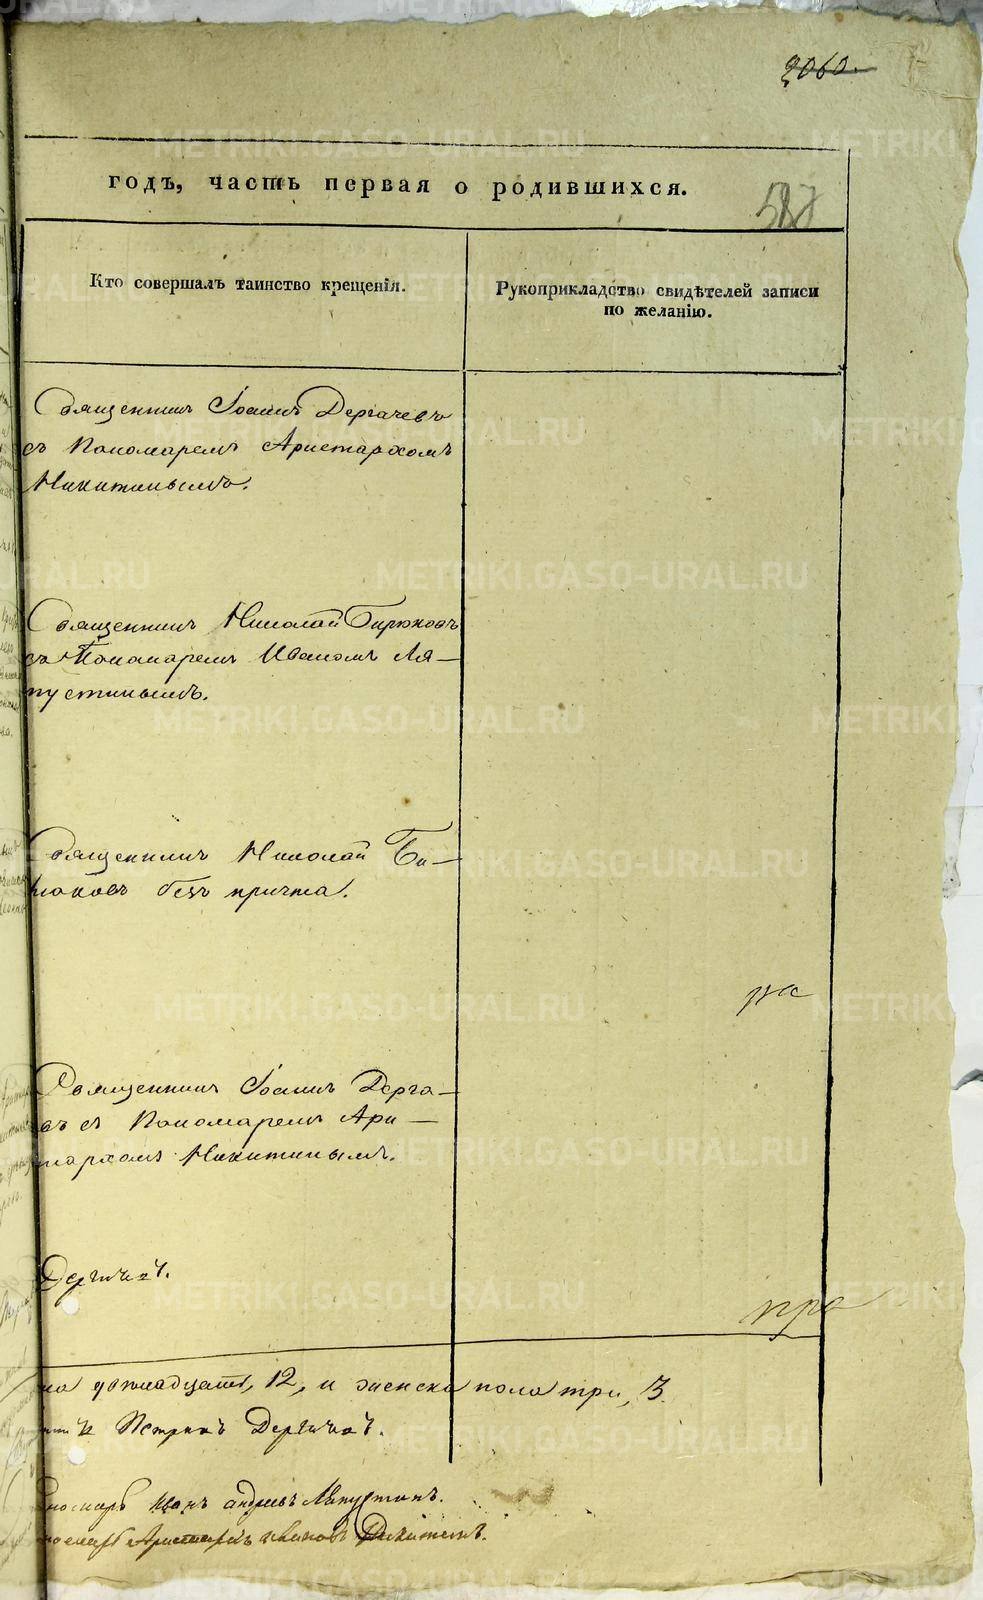 2060.
годъ, часть первая о родившихся.
Кто совершалъ таинство крещенія.
Рукоприкладство свидѣтелей записи
по желанію.
Священникъ Іоаннъ Дергачевъ
съ Пономаремъ Аристархомъ
Никитинымъ.
Священникъ Николай Бирюковъ
съ Пономаремъ Иваномъ Ля-
пустинымъ.
Священникъ Николай Би-
рюковъ безъ причта.
Священникъ Іоаннъ Дерга-
въ съ Пономаремъ Ари-
тархомъ Никитинымъ.
на двенадцать, 12, и женска пола три, 3.
Пономарь Иванъ Андреевъ Ляпустинъ.
METRIKI.GASO-URAL.RU